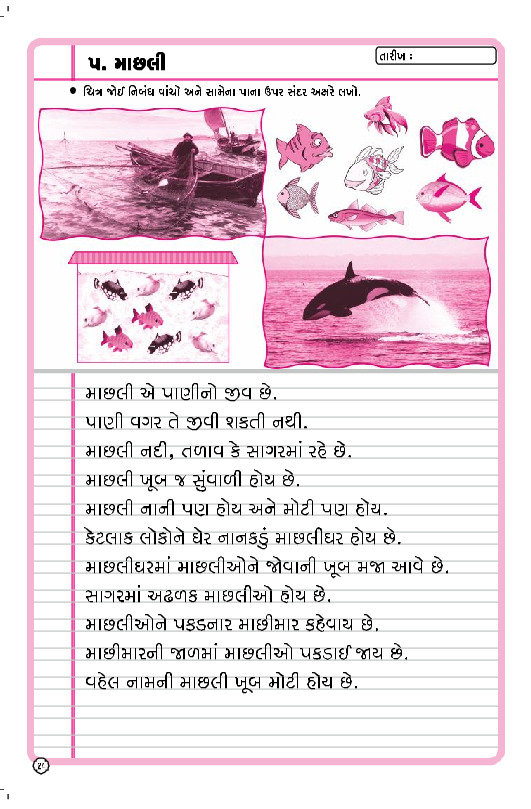 ૫. માછલી
તારીખ :
• ચિત્ર જોઈ નિબંધ વાંચો અને સામેના પાના ઉપર સુંદર અક્ષરે લખો.
માછલી એ પાણીનો જીવ છે.
પાણી વગર તે જીવી શકતી નથી.
માછલી નદી, તળાવ કે સાગરમાં રહે છે.
માછલી ખૂબ જ સુંવાળી હોય છે.
માછલી નાની પણ હોય અને મોટી પણ હોય.
કેટલાક લોકોને ઘેર નાનકડું માછલીઘર હોય છે.
માછલીઘરમાં માછલીઓને જોવાની ખૂબ મજા આવે છે.
સાગરમાં અઢળક માછલીઓ હોય છે.
માછલીઓને પકડનાર માછીમાર કહેવાય છે.
માછીમારની જાળમાં માછલીઓ પકડાઈ જાય છે.
વહેલ નામની માછલી ખૂબ મોટી હોય છે.